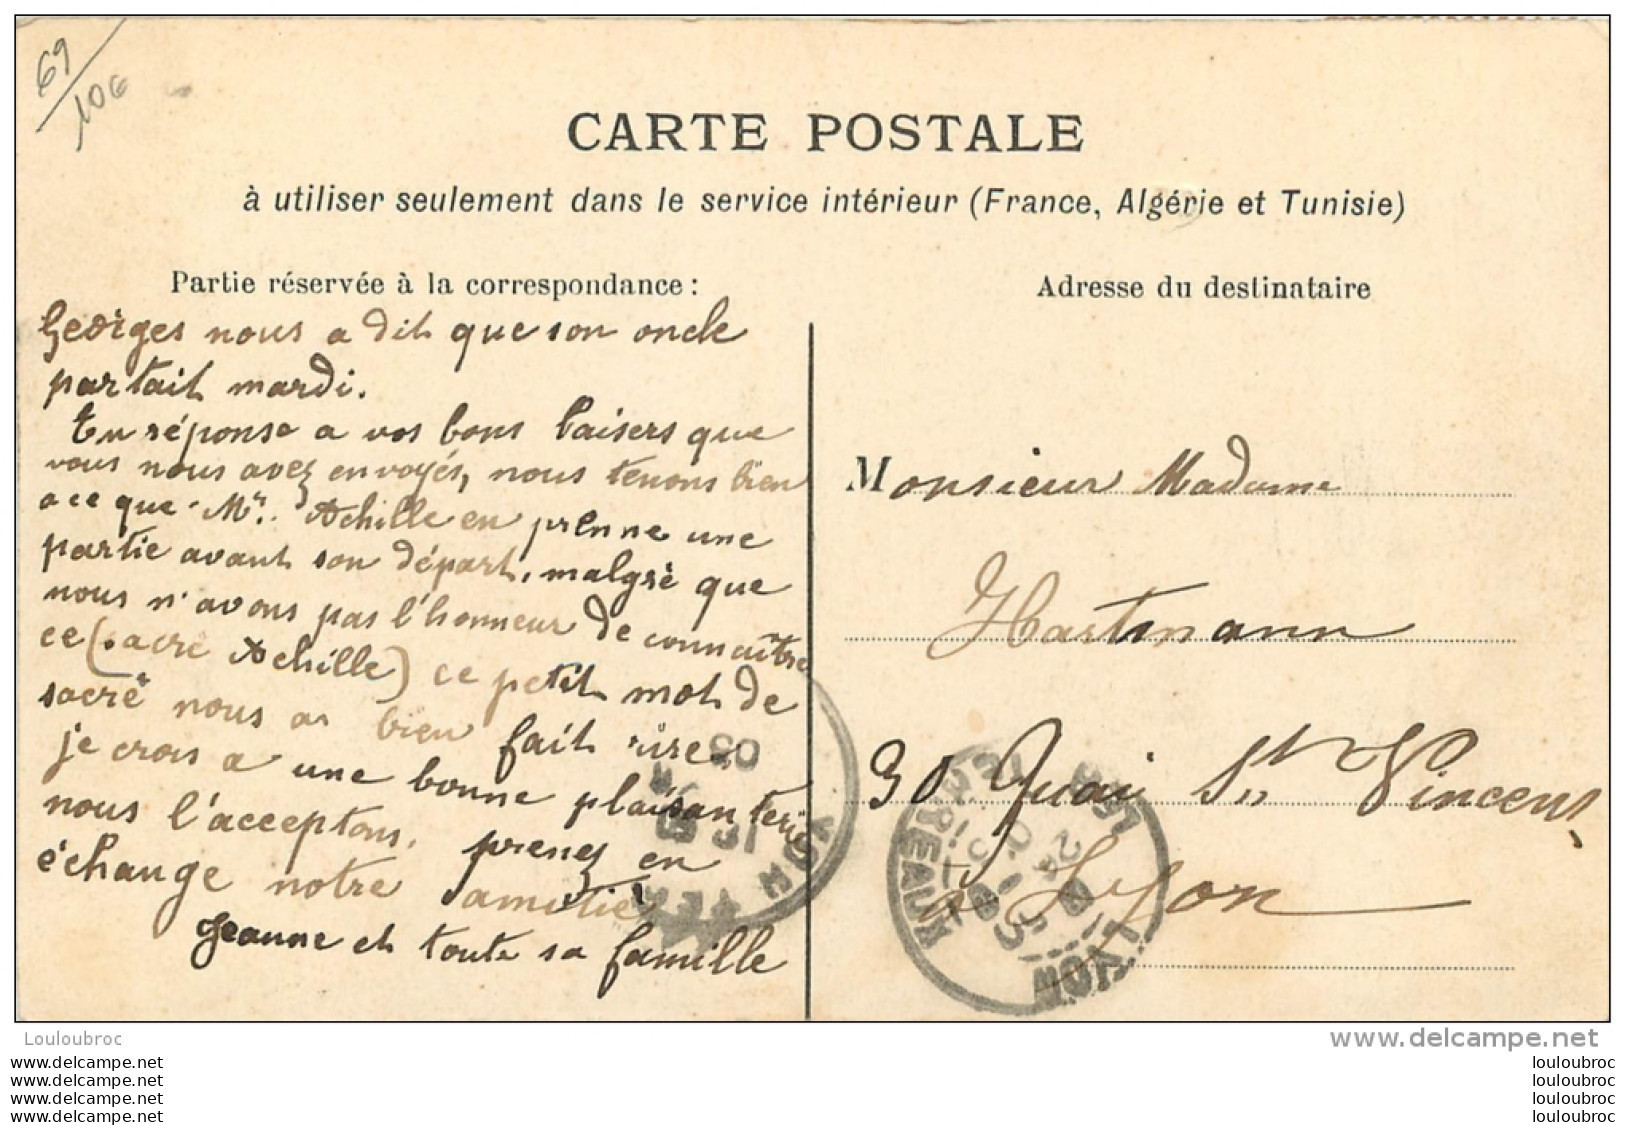 69
10€
CARTE POSTALE
à utiliser seulement dans le service intérieur (France, Algérie et Tunisie)
Partie réservée à la correspondance :
Georges nous a dit que son oncle
partait mardi.
En réponse a vos bons baisers que
vous nous avez envoyés, nous tenons bien
a ce que Mr. Achille en prenne une
partie avant son départ, malgré que
nous n'avons pas l'honneur de connaître
ce (sacre Achille) ce petit mot de
sacré nous a bien fait rire
je crois a une bonne plaisanterie
nous l'acceptons. prenez en
échange notre amitié
Jeanne et toute sa famille
Adresse du destinataire
Monsieur Madame
Hartmann
30 Quai St Vincent
a Lyon
LYON
TERREAUX
Louloubroc
www.delcampe.net
www.delcampe.net
www.delcampe.net
www.delcampe.net
www.delcampe.net
louloubroc
louloubroc
louloubroc
louloubroc